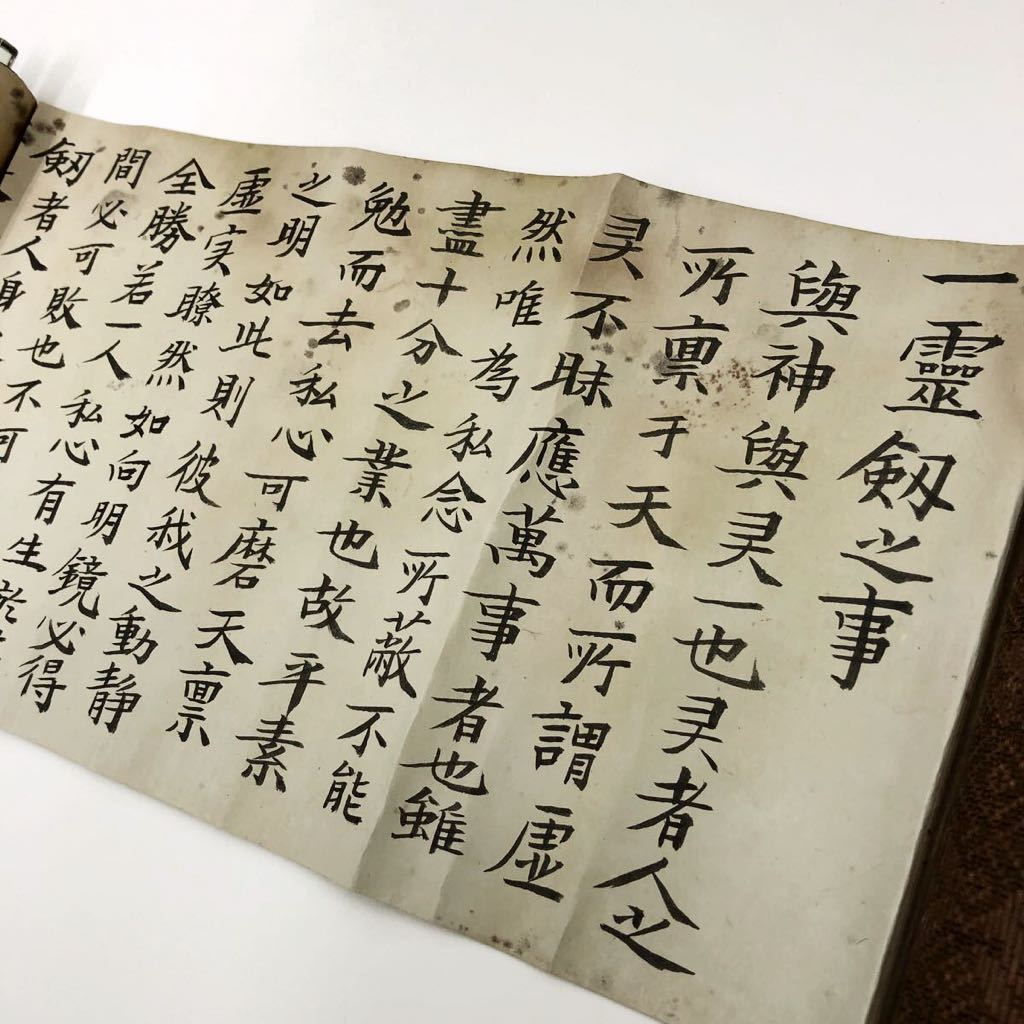 一靈劔之事
與神與灵一也灵者人之
所禀于天而所謂虚
灵不昧應萬事者也雖
然唯為私念所蔽不能
盡十分之業也故平素
勉而去私心可磨天禀
之明如此則彼我之動静
虚实瞭然如向明鏡必得
全勝若一人私心有生於
間必可敗也不可
劔者人身